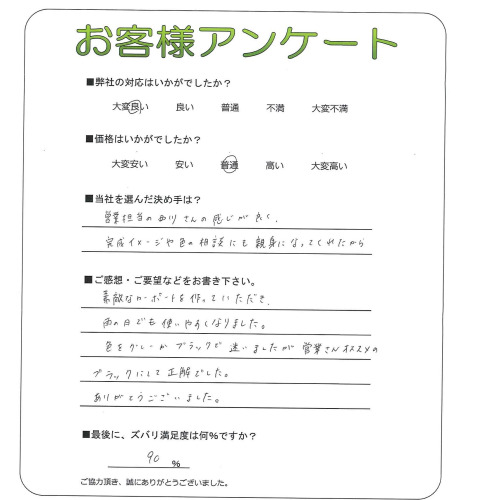 お客様アンケート
■弊社の対応はいかがでしたか？
大変良い 良い 普通 不満 大変不満
■価格はいかがでしたか？
大変安い 安い 普通 高い 大変高い
■当社を選んだ決め手は？
営業担当の西川さんの感じが良く、
完成イメージや色の相談にも親身になってくれたから
■ご感想・ご要望などをお書き下さい。
素敵なカーポートを作っていただき、
雨の日でも使いやすくなりました。
色をグレーかブラックで迷いましたが営業さんオススメの
ブラックにして正解でした。
ありがとうございました。
■最後に、ズバリ満足度は何%ですか？
90 %
ご協力頂き、誠にありがとうございました。